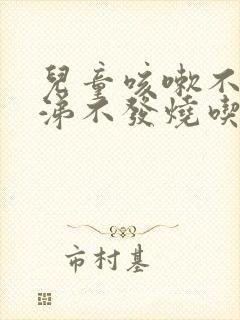 兒童咳嗽不
涕不發燒喫
市村基